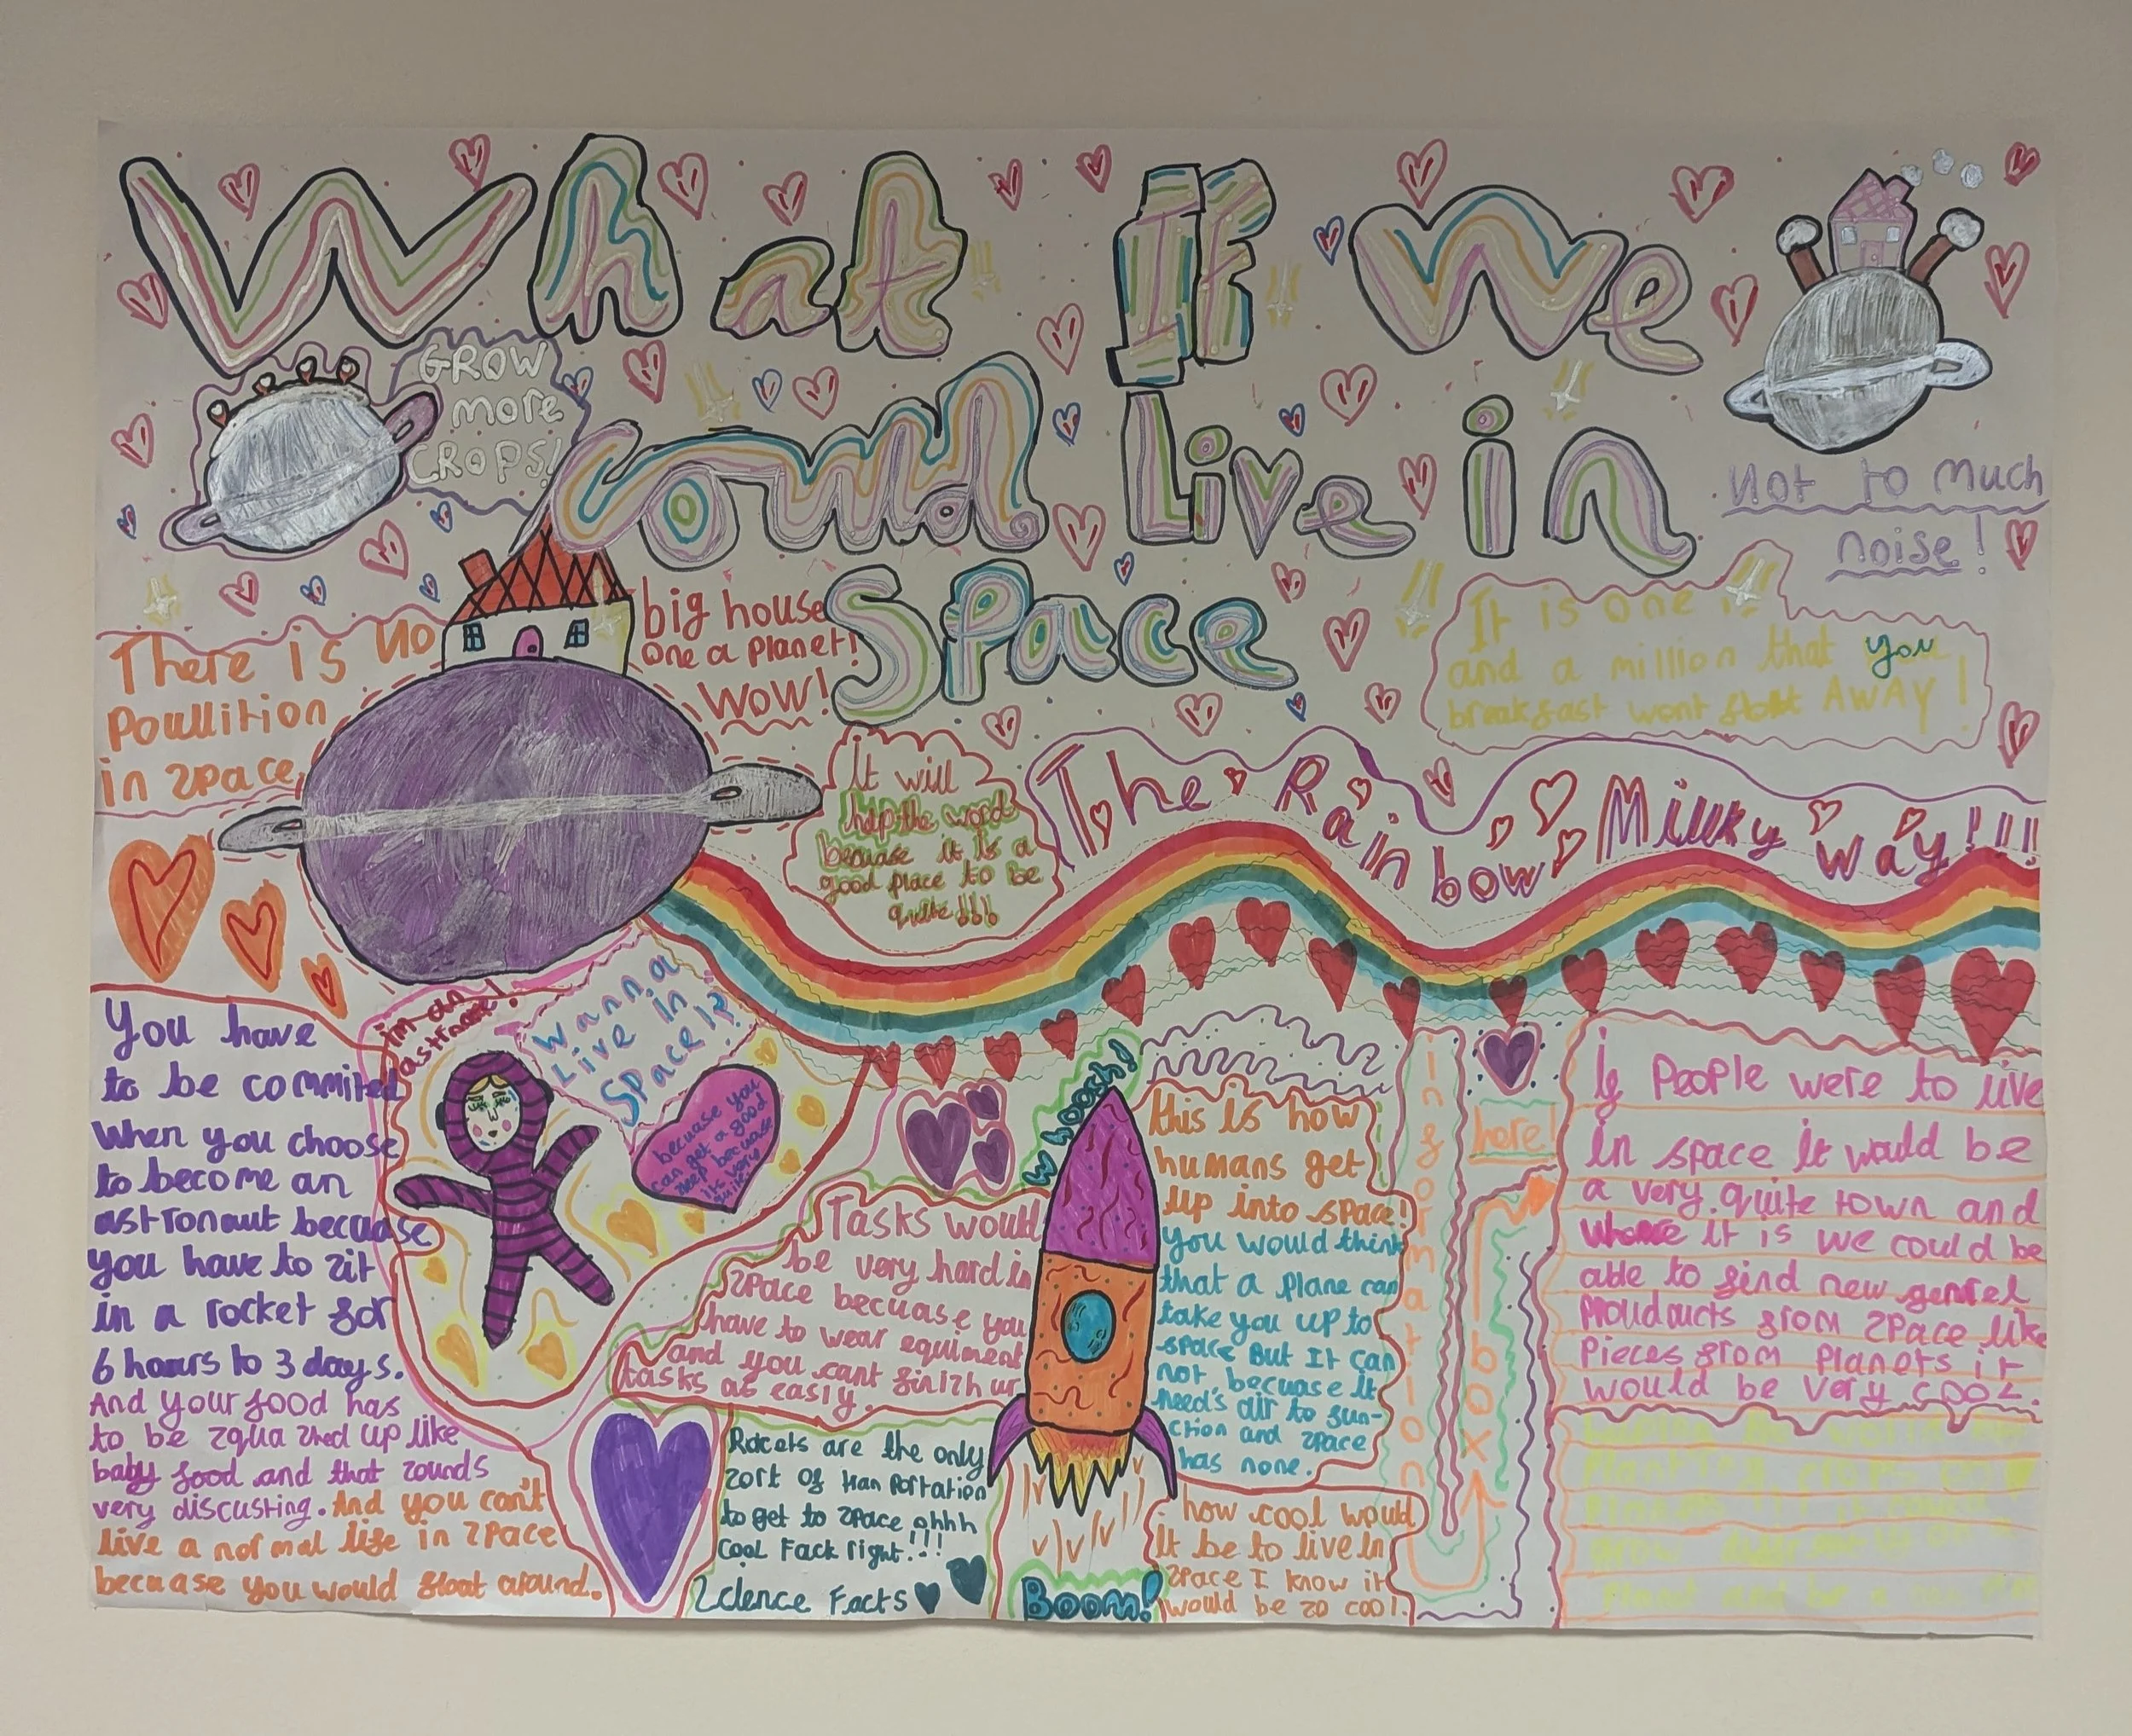 What If We
Could Live in
Space
GROW
more
CROPS!
Not to much
noise!
There is No
Poullition
in space
big house
one a planet!
WOW!
It is one in
and a million that you
breakfast wont float AWAY!
It will
help the world
becuase it is a
good place to be
quite!!!
The Rainbow Milky Way!!!!
You have
to be commited
When you choose
to become an
astronaut becuase
you have to sit
in a rocket for
6 hours to 3 days.
And your food has
to be squashed up like
baby food and that sounds
very discusting. And you can't
live a normal life in space
becuase you would float around.
im an
astronat!
Wanna
Live in
Space!?
becuase you
can get a good
sleep becuase
its very
quite
Tasks would
be very hard in
space becuase you
have to wear equiment
and you cant finish ur
tasks as easily.
Rocets are the only
sort of tranportation
to get to space ohhh
Cool Fack right!!!
Science Facts
Woosh!
Boom!
this is how
humans get
up into space!
you would think
that a plane can
take you up to
space But It Can
not becuase It
need's air to fun-
ction and space
has none.
how cool would
it be to live in
space I know it
would be so cool.
Information
box
here!
If People were to live
in space it would be
a very quite town and
where it is we could be
able to find new genrel
prouducts from space like
Pieces from Planets it
would be very cool.